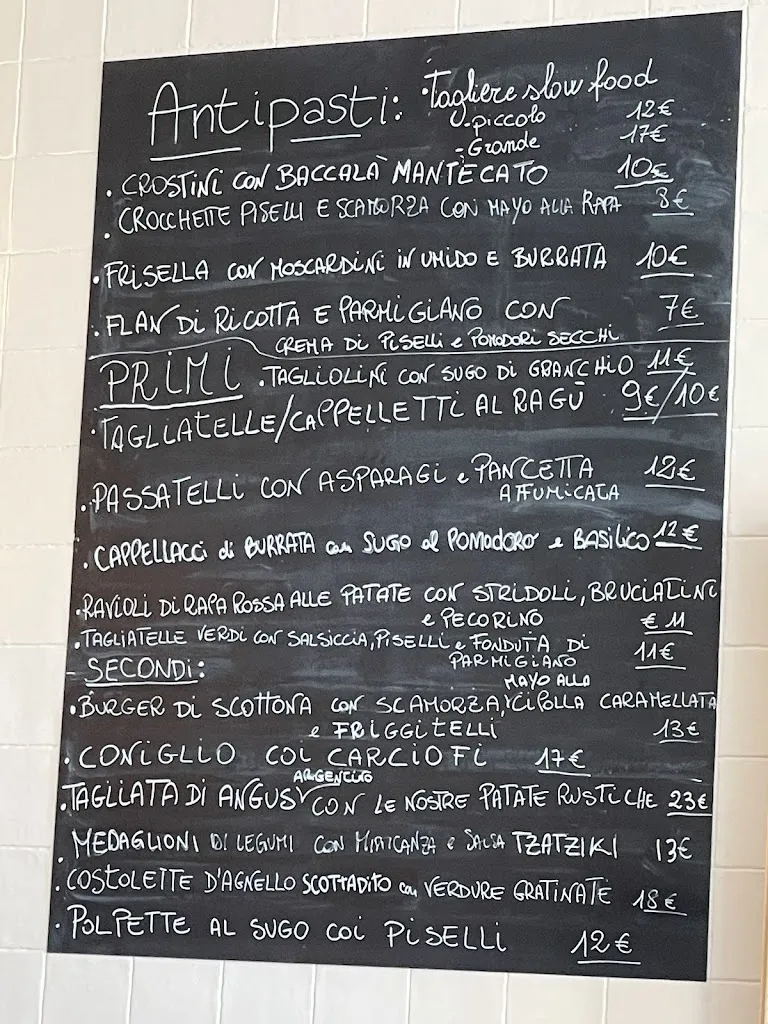 Antipasti: • Tagliere slow food
- Piccolo 12€
- Grande 17€
• CROSTINI CON BACCALÀ MANTECATO 10€
• CROCCHETTE PISELLI E SCAMORZA CON MAYO ALLA RAPA 8€
• FRISELLA CON MOSCARDINI IN UMIDO E BURRATA 10€
• FLAN DI RICOTTA E PARMIGIANO CON 7€
CREMA DI PISELLI e POMODORI SECCHI
PRIMI • TAGLIOLINI CON SUGO DI GRANCHIO 11€
• TAGLIATELLE/CAPPELLETTI AL RAGÙ 9€/10€
• PASSATELLI CON ASPARAGI e PANCETTA 12€
AFFUMICATA
• CAPPELLACCI di BURRATA con SUGO al POMODORO e BASILICO 12€
• RAVIOLI DI RAPA ROSSA ALLE PATATE CON STRIDOLI, BRUCIATINI
e PECORINO € 11
• TAGLIATELLE VERDI CON SALSICCIA, PISELLI e FONDUTA DI
PARMIGIANO 11€
- SECONDI:
MAYO ALLA
• BURGER DI SCOTTONA CON SCAMORZA, CIPOLLA CARAMELLATA
e FRIGGITELLI 13€
• CONIGLIO COI CARCIOFI 17€
ARGENTINO
• TAGLIATA DI ANGUS CON LE NOSTRE PATATE RUSTICHE 23€
• MEDAGLIONI DI LEGUMI CON e SALSA TZATZIKI 13€
• COSTOLETTE D'AGNELLO SCOTTADITO con VERDURE GRATINATE 18€
• POLPETTE AL SUGO COI PISELLI 12€